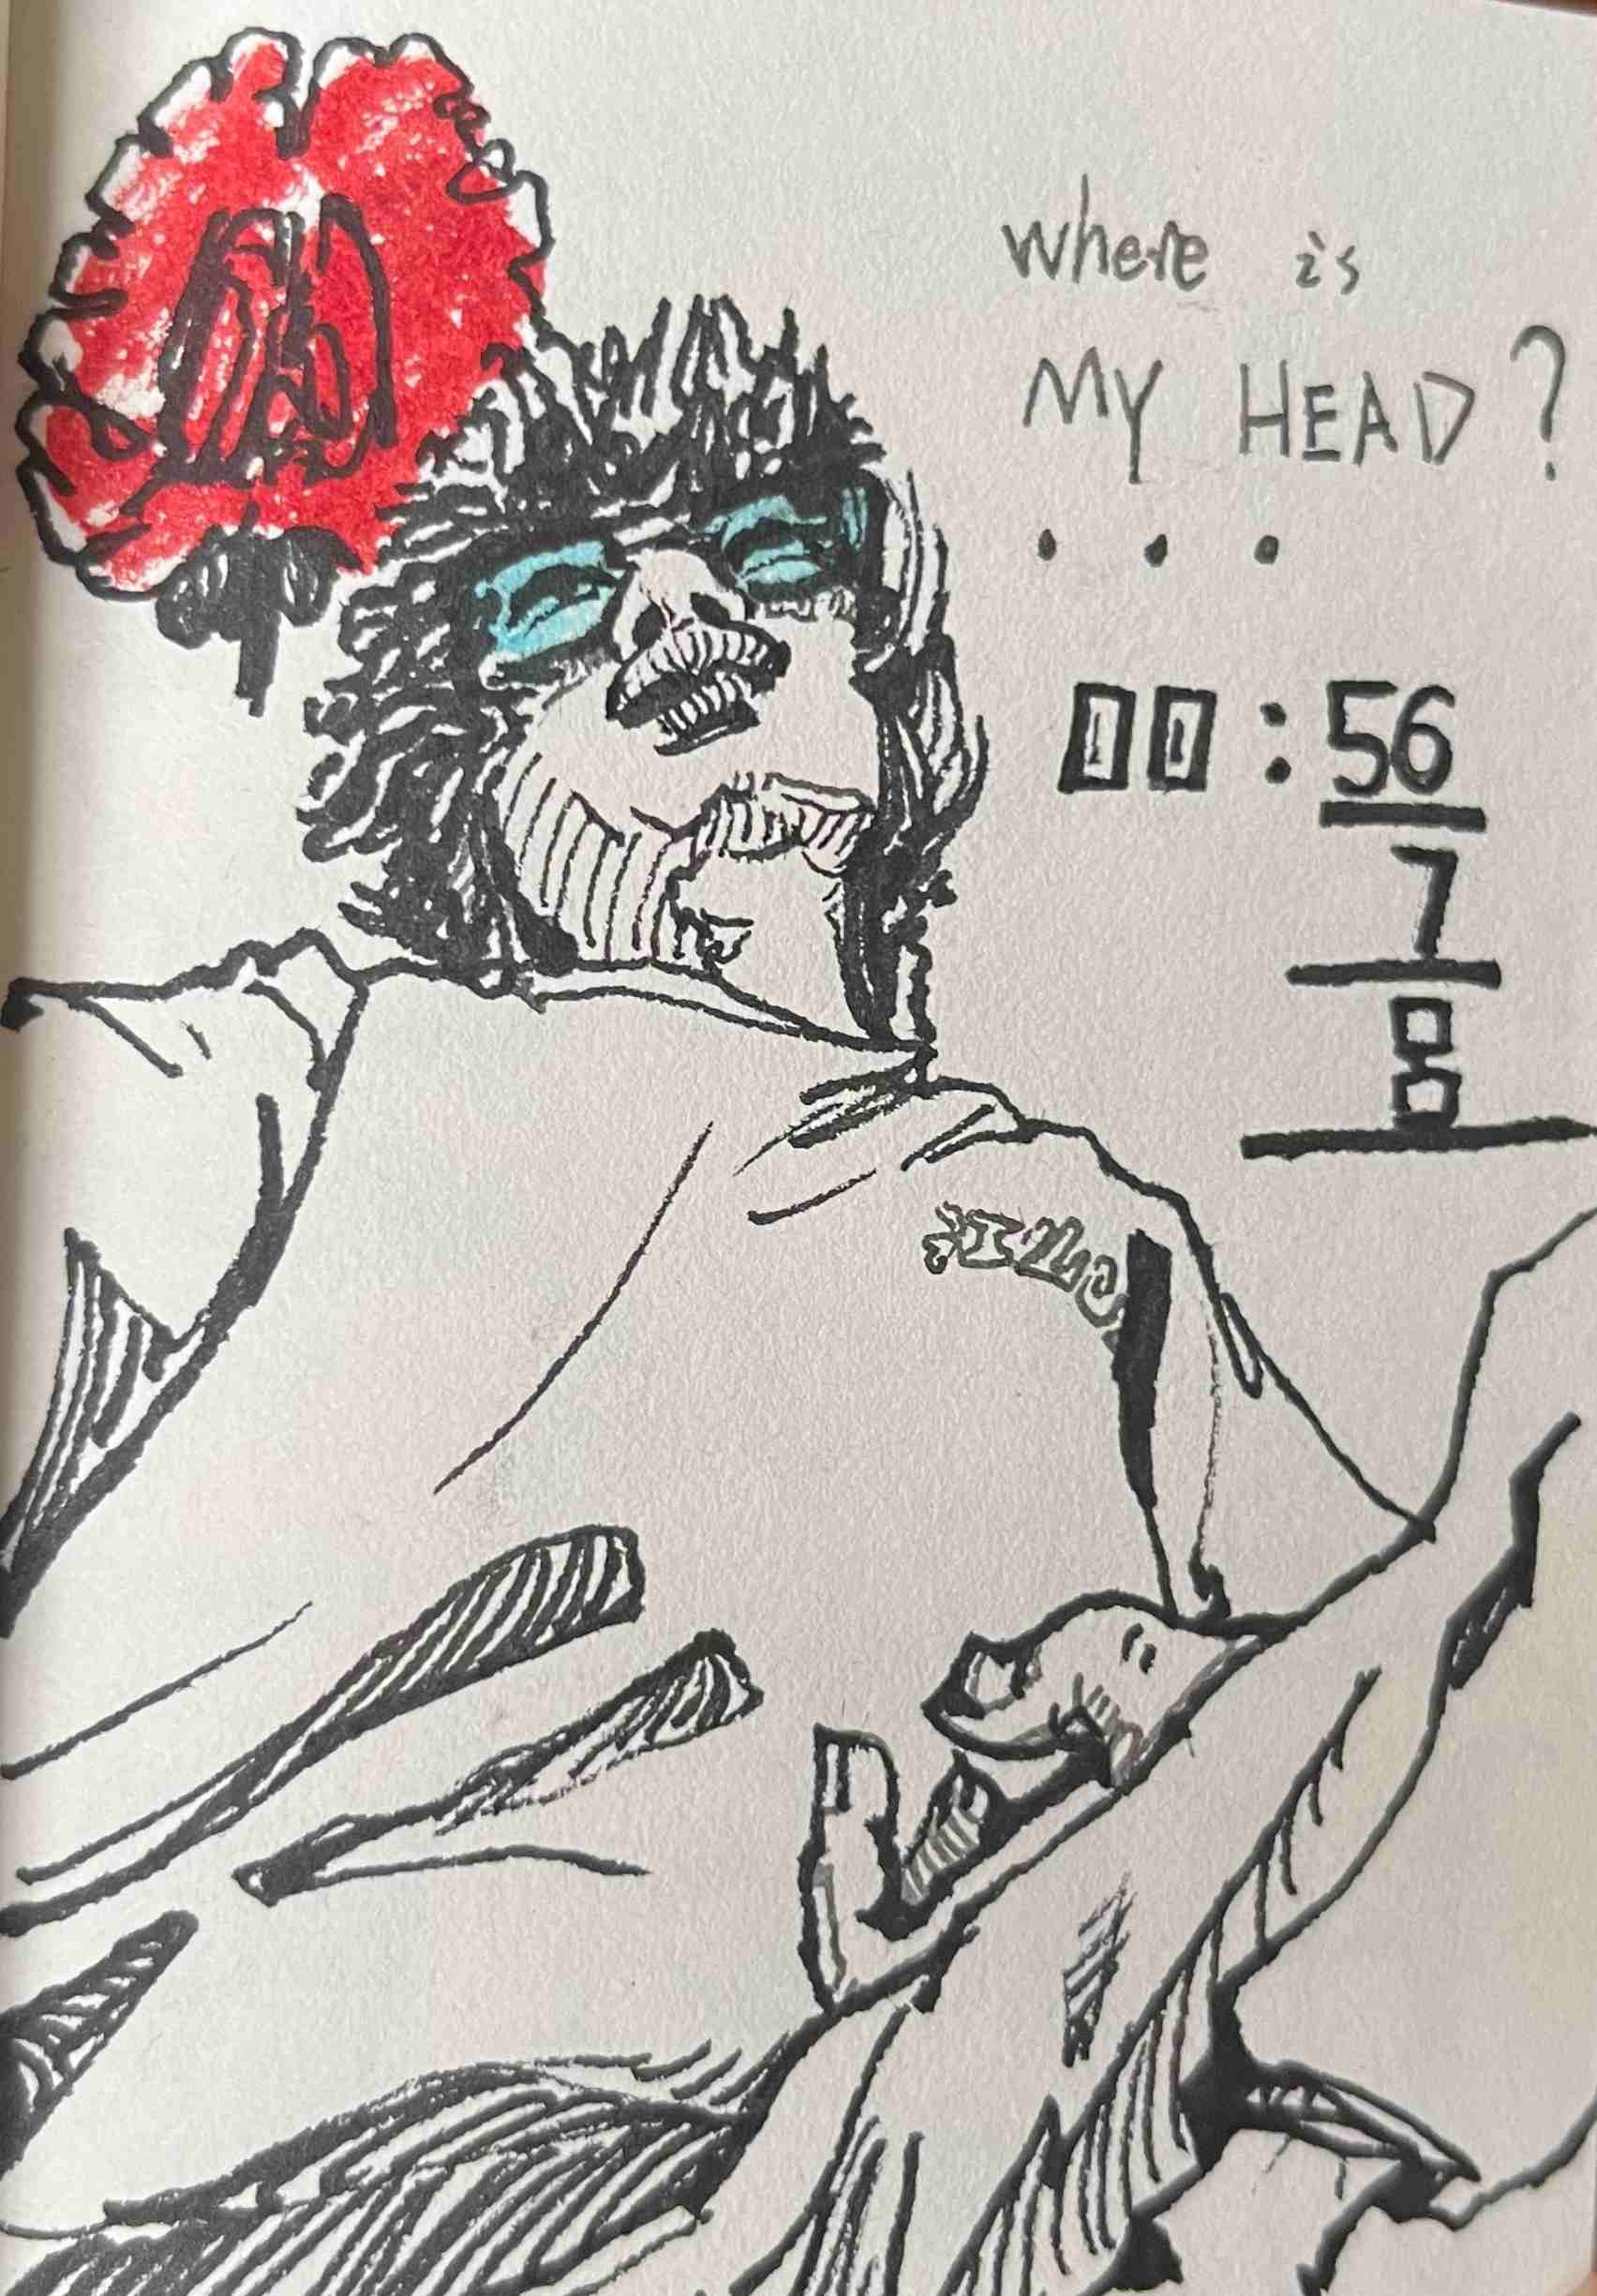 where is
MY HEAD?
...
00:56
7
8